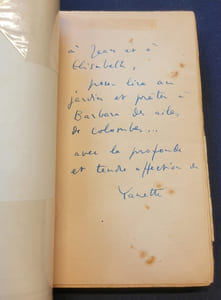 à Jean et à
Elisabeth,
pour lire au
jardin et prêter à
Barbara des ailes
de colombes...
avec la profonde
et tendre affection de